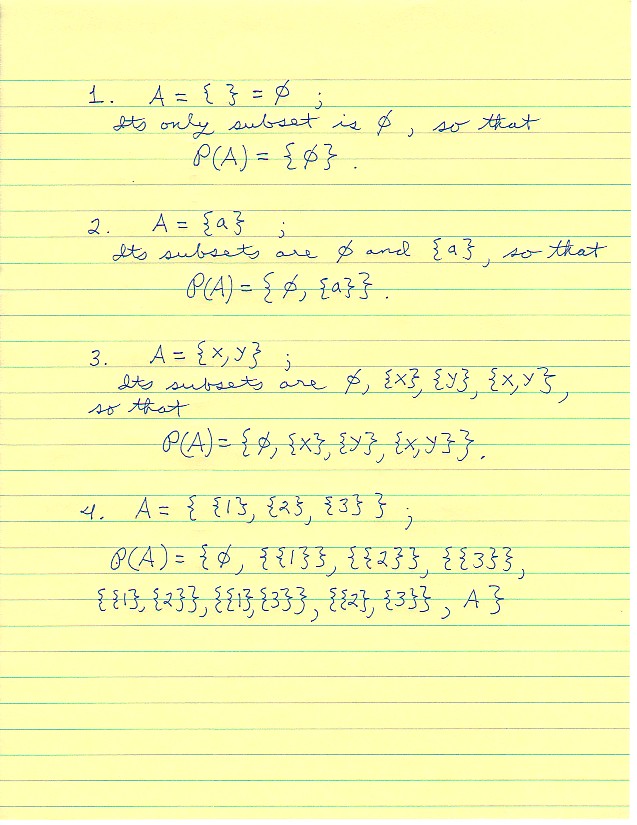 1. A = { } = ∅ ;
Its only subset is ∅, so that
P(A) = {∅}.
2. A = {a} ;
Its subsets are ∅ and {a}, so that
P(A) = {∅, {a}}.
3. A = {x, y} ;
Its subsets are ∅, {x}, {y}, {x, y},
so that
P(A) = {∅, {x}, {y}, {x, y}}.
4. A = { {1}, {2}, {3} } ;
P(A) = {∅, {{1}}, {{2}}, {{3}},
{{1}, {2}}, {{1}, {3}}, {{2}, {3}}, A }